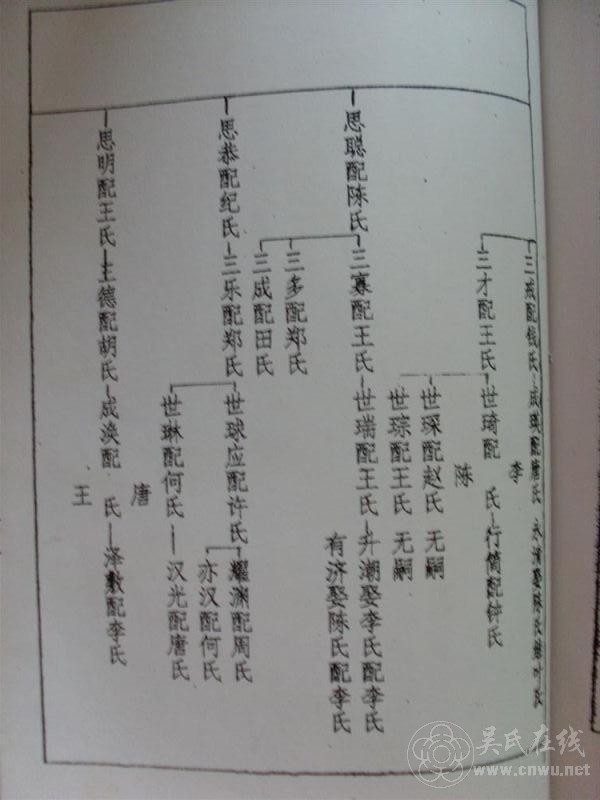 三戒配钱氏
成瑛配唐氏
李
永清娶陈氏继叶氏
三才配王氏
世琦配 氏
陈
行简配钟氏
世琛配赵氏 无嗣
世琮配王氏 无嗣
思聪配陈氏
三寡配王氏
世瑞配王氏
升潮娶李氏配李氏
有济娶陈氏配李氏
三多配郑氏
三成配田氏
思恭配纪氏
三乐配郑氏
世球应配许氏
耀渊配周氏
亦汉配何氏
世琳配何氏
汉光配唐氏
思明配王氏
主德配胡氏
成涣配 氏
唐
王
泽敷配李氏
吴氏在线
www.cnwu.net